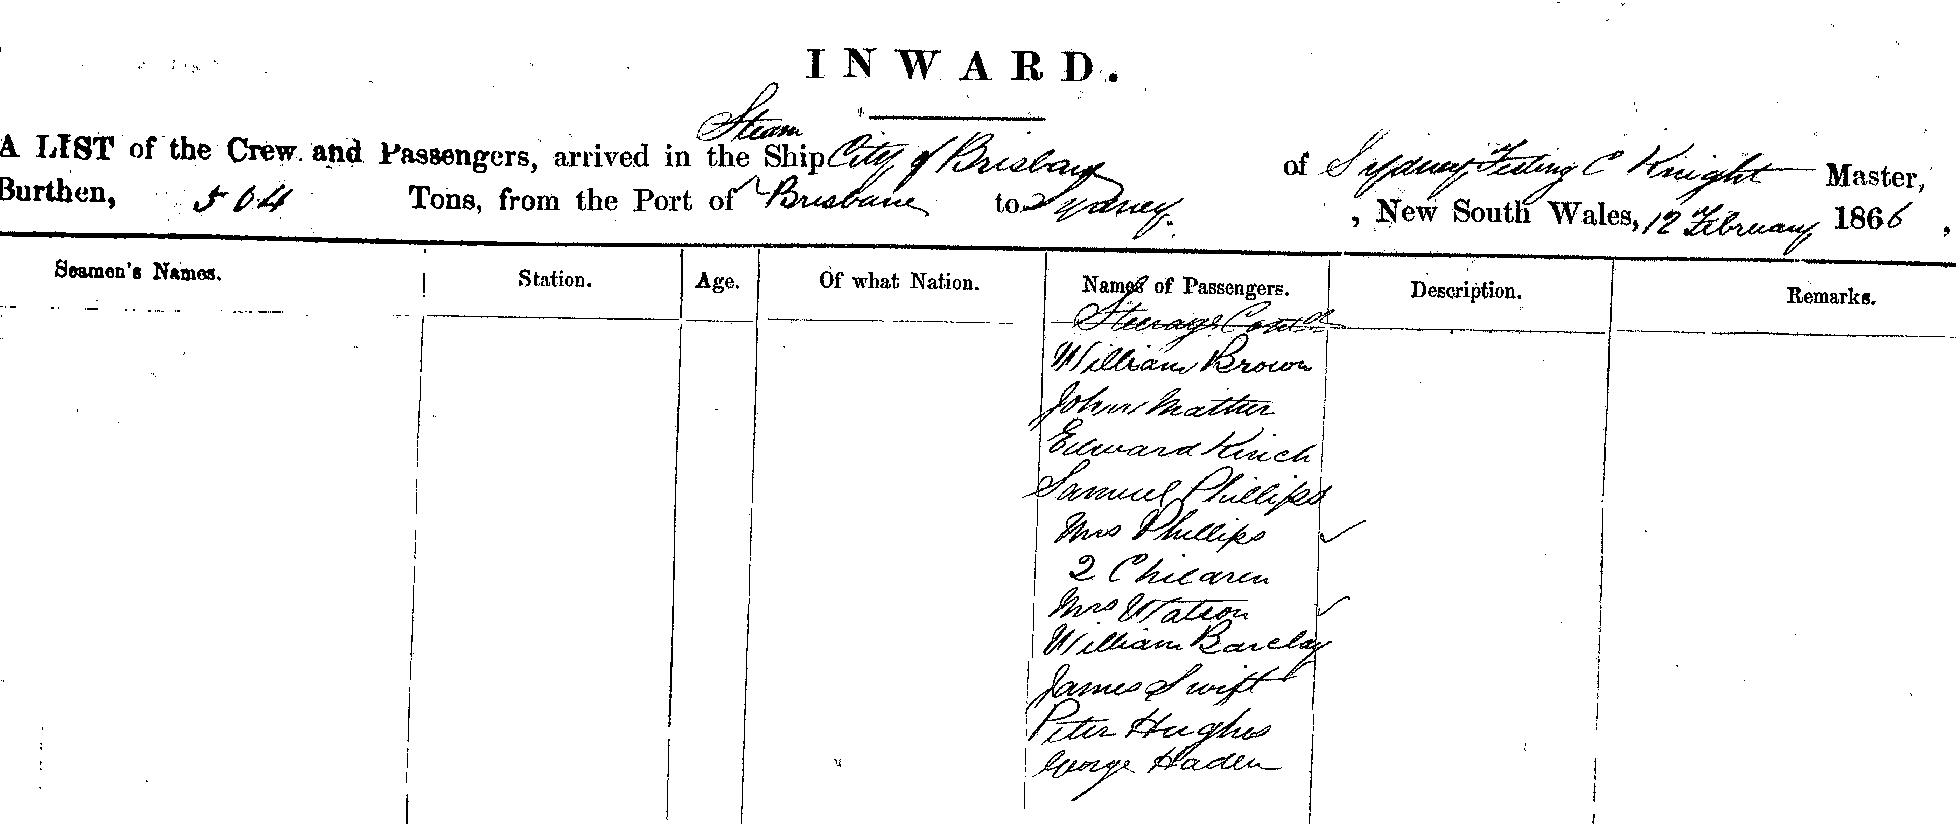 INWARD.
Steam
A LIST of the Crew and Passengers, arrived in the Ship City of Brisbane of Sydney Testing C Knight Master,
Burthen, 504 Tons, from the Port of Brisbane to Sydney. , New South Wales, 12 February 1866 ,
Seamen's Names. Station. Age. Of what Nation. Names of Passengers. Description. Remarks.
Steerage Contd
William Brown
John Mather
Edward Kinch
Samuel Phillips
Mrs Phillips ✓
2 Children
Mrs Watson ✓
William Barclay
James Swift
Peter Hughes
George Haden